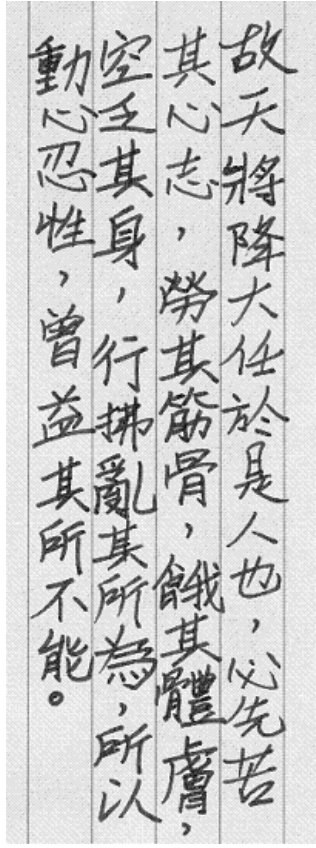 故天將降大任於是人也，必先苦
其心志，勞其筋骨，餓其體膚，
空乏其身，行拂亂其所為，所以
動心忍性，曾益其所不能。